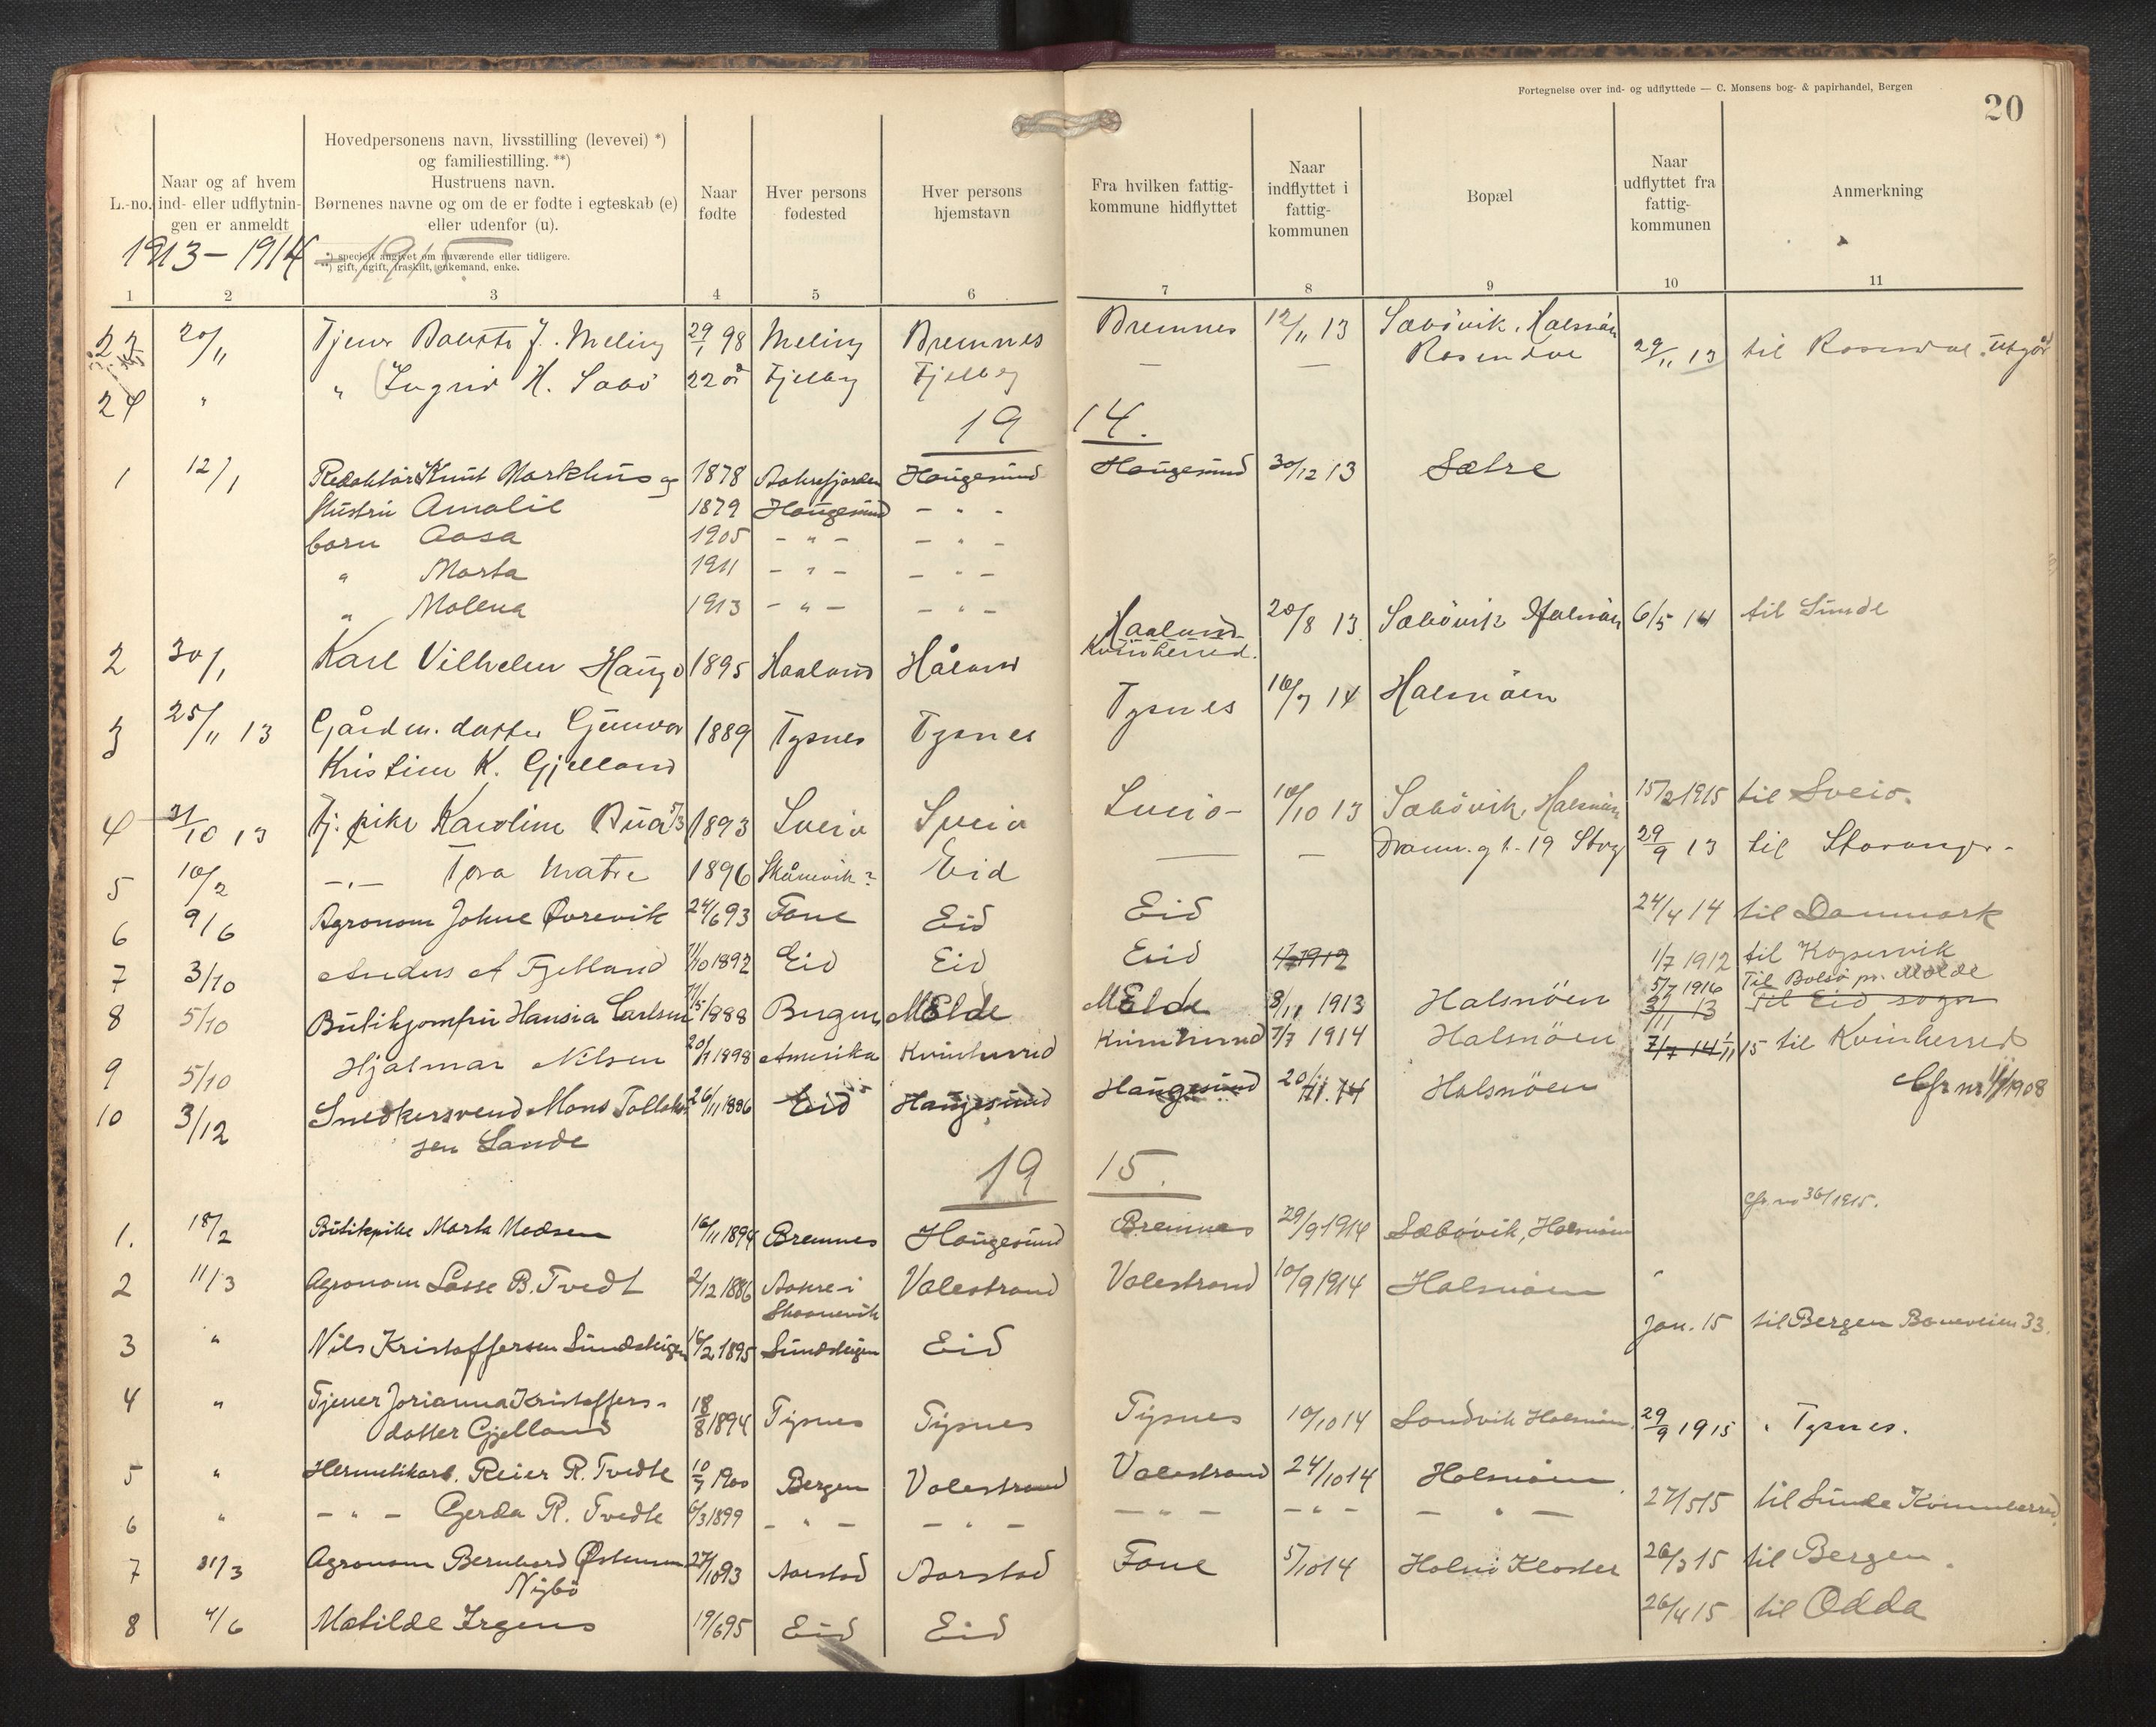 Fortegnelse over ind- og udflyttede — C. Monsens bog- & papirhandel, Bergen
20
L.-no.
Naar og af hvem ind- eller udflytnin-gen er anmeldt
Hovedpersonens navn, livsstilling (levevei) *)
og familiestilling. **)
Hustruens navn.
Børnenes navne og om de er fødte i egteskab (e)
eller udenfor (u).
*) specielt angivet om nuværende eller tidligere.
**) gift, ugift, fraskilt, enkemand, enke.
Naar fødte
Hver persons fødested
Hver persons hjemstavn
Fra hvilken fattig-kommune hidflyttet
Naar indflyttet i fattig-kommunen
Bopæl
Naar udflyttet fra fattig-kommunen
Anmerkning
1913 - 1914
1 2 3 4 5 6 7 8 9 10 11
20/11 J. Meling 29/1 98 Meling Bremnes Bremnes 12/11 13 Sæbövik, Halsnön
24 " " Ingrid H. Sæbö 22 år Fjelby Fjelby — — Rosendal 29/11 13 til Rosendal. Utgår
1914.
1 12/1 Redaktör Knut Markhus og 1878 Aakrefjorden Haugesund Haugesund 30/12 13 Sætre
Hustru Amalie 1879 Haugesund - " -
börn Aasa 1905 - " - - " -
" Marta 1911 - " - - " -
" Molena 1913 - " - - " -
2 30/1 Karl Vilhelm Haug 1895 Haaland Håland Haaland Kvinherred. 20/8 13 Sæbövik Halsnön 6/5 14 til Sunde
3 25/11 13 Gårdm. datter Gunvor 1889 Tysnes Tysnes Tysnes 14 Halsnöen
Kristine K. Gjelland
4 21/10 13 Tj. pike Karoline Bua 1893 Sveio Sveio Sveio - 10/10 13 Sæbövik, Halsnön 15/2 1915 til Sveio.
5 10/2 -"- Tora Matre 1896 Skånevik? Eid — — Dramm. g t. 19 Stvg 29/9 13 til Stavanger.
6 9/6 Agronom Johne Øvrevik 24/6 93 Fane Eid Eid 24/4 14 til Danmark
7 3/10 Anders A Fjelland 1892 Eid Eid Eid 1/7 1912 1/7 1912 til Kopervik
8 5/10 Butikjomfru Hansia Carlsen 1888 Bergen Molde Molde 8/11 1913 Halsnöen 5/7 1916 Til Bolsö pr. Molde
3/11 13 Til Eid sogn
9 5/10 Hjalmar Nilsen 1898 Amerika Kvinherred Kvinherred 7/7 1914 Halsnöen 7/7 14 1/11 15 til Kvinherred
10 3/12 Snedkersvend Mons Tollak- 26/11 1886 Eid Haugesund Haugesund Halsnöen Cfr nr 1908
sen Sande
1915.
cfr. no 36/1915.
1. 18/2 Butikpike Marta Medsen 16/11 1894 Bremnes Haugesund Bremnes 29/9 1914 Sæbövik, Halsnöen
2 11/3 Agronom Lasse B. Tvedt 2/12 1886 Aakre i Skaanevik Valestrand Valestrand 10/9 1914 Halsnöen
3 " Nils Kristoffersen Sundsteigen 16/2 1895 Sundsteigen Eid Jan. 15 til Bergen 33.
4 " Tjener Jorianna Kristoffers- 18/8 1894 Tysnes Tysnes Tysnes 10/10 14 Sandvik Halsnöen 29/9 1915 " Tysnes.
datter Gjelland
5 " Hermetikarb. Reier R. Tvedte 10/7 1900 Bergen Valestrand Valestrand 24/10 14 Halsnöen
6 " - " - Gerda R. Tvedte 6/3 1899 - " - - " - - " - - " - - " - 27/5 15 til Sunde Kvinnherred.
7 31/3 Agronom Bernhard Østensen 27/10 93 Aarstad Aarstad Fane 5/10 14 Halsnö Kloster 26/3 15 til Bergen.
Nybö
8 4/6 Matilde Irgens 19/6 95 Eid Eid 26/4 15 til Odda